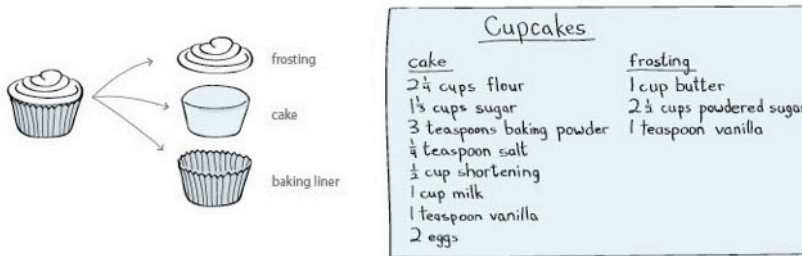 frosting
cake
baking liner
Cupcakes
cake
2 1/4 cups flour
1 1/3 cups sugar
3 teaspoons baking powder
1/4 teaspoon salt
1/2 cup shortening
1 cup milk
1 teaspoon vanilla
2 eggs
frosting
1 cup butter
2 1/2 cups powdered sugar
1 teaspoon vanilla